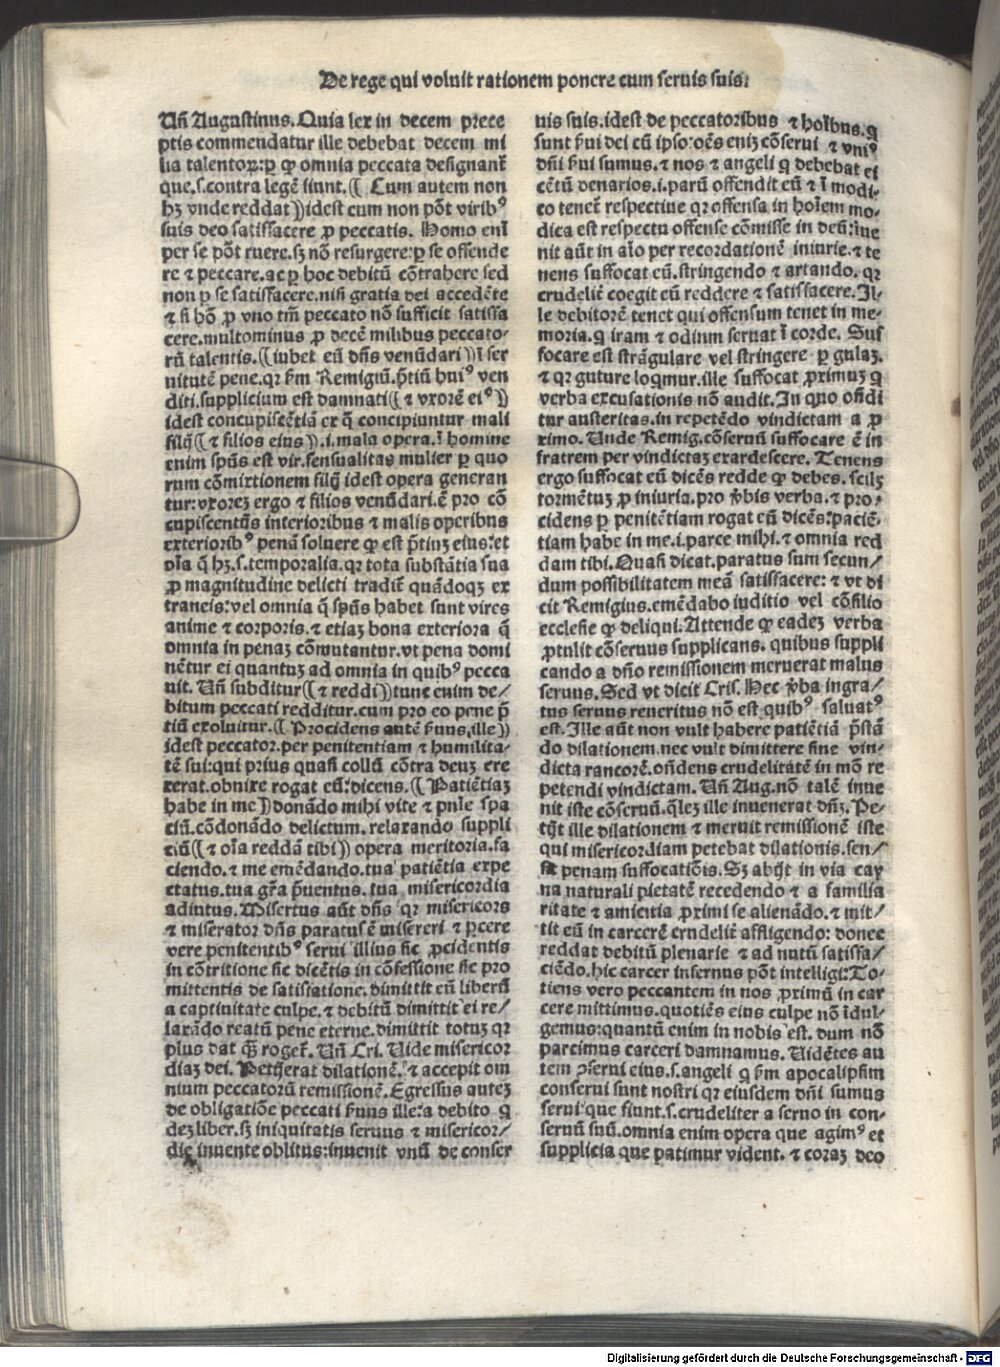 De rege qui voluit rationem ponere cum seruis suis.
Uñ Augustinus. Quia lex in decem prece
ptis commendatur ille debebat decem mi
lia talentoꝝ: ꝑ ꝙ omnia peccata designant᷑
que.s.contra legē fiunt. (Cum autem non
hꝫ vnde reddat) idest cum non pōt viribꝰ
suis deo satisfacere ꝓ peccatis. Homo eni᷑
per se pōt ruere.sꝫ nō resurgere: ꝑ se offende
re ⁊ peccare.ac ꝑ hoc debitū cōtrahere sed
non ꝑ se satisfacere.nisi gratia dei accedēte
⁊ si hō ꝓ vno tm̄ peccato nō sufficit satisfa
cere.multominus ꝓ decē milibus peccato-
rū talentis. (iubet eū dn̄s venūdari) ī ser
uitutē pene.qꝛ ẜm Remigiū.p̄tiū huiꝰ ven
diti.supplicium est damnati (⁊ vxorē eiꝰ)
idest concupiscētiā ex q̄ concipiuntur mali
filij (⁊ filios eius).i.mala opera.ī homine
enim spūs est vir.sensualitas mulier ꝑ quo
rum cōmixtionem filij idest opera generan
tur: vxorez ergo ⁊ filios venūdari.ē pro cō
cupiscentijs interioribus ⁊ malis operibus
exterioribꝰ penā soluere ꝙ est p̄tiuꝫ eius: et
oīa q̄ hꝫ.s.temporalia.qꝛ tota substātia sua
ꝓ magnitudine delicti tradit᷑ quādoqꝫ ex
traneis: vel omnia q̄ spūs habet sunt vires
anime ⁊ corporis.⁊ etiaꝫ bona exteriora q̄
omnia in penaꝫ cōmutantur.vt pena domi
nētur ei quantuꝫ ad omnia in quibꝰ pecca
uit. Uñ subditur (⁊ reddi) tunc enim de/
bitum peccati redditur.cum pro eo pene p̄
tiū exoluitur. (Procidens autē ẜuus.ille)
idest peccator.per penitentiam ⁊ humilita-
tē sui: qui prius quasi collū cōtra deuꝫ ere
xerat.obnixe rogat eū: dicens. (Patiētiaꝫ
habe in me) donādo mihi vite ⁊ pn̄ie spa
ciū.cōdonādo delictum.relaxando suppli
tiū (⁊ oīa reddā tibi) opera meritoria.fa
ciendo.⁊ me emēdando.tua patiētia expe
ctatus.tua grā p̄uentus.tua misericordia
adiutus. Misertus aūt dn̄s qꝛ misericors
⁊ miserator dn̄s paratus ē misereri ⁊ ꝑcere
vere penitentibꝰ serui illius sic ꝓcidentis
in cōtritione sic dicētis in cōfessione sic pro
mittentis de satisfatione.dimittit eū liberū
a captiuitate culpe.⁊ debitū dimittit ei re/
laxādo reatū pene eterne.dimittit totuꝫ qꝛ
plus dat qꝫ̄ roget᷑. Uñ Cri. Uide misericor
diaꝫ dei. Petijerat dilationē.⁊ accepit om
nium peccatorū remissionē. Egressus auteꝫ
de obligatiōe peccati ẜuus ille: a debito q
deꝫ liber.sꝫ iniquitatis seruus ⁊ misericor/
die inuente oblitus: inuenit vnū de conser
uis suis.idest de peccatoribus ⁊ hoībus.q
sunt ẜui dei cū ipso: oēs eniꝫ cōserui ⁊ vniꝰ
dn̄i ẜui sumus.⁊ nos ⁊ angeli q debebat ei
cētū denarios.i.parū offendit eū ⁊ ī modi-
co tenet᷑ respectiue qꝛ offensa in hoīem mo-
dica est respectu offense cōmisse in deū: īue
nit aūt in aīo per recordationē iniurie.⁊ te
nens suffocat eū.stringendo ⁊ artando.qꝛ
crudelit᷑ coegit eū reddere ⁊ satisfacere. Il-
le debitorē tenet qui offensum tenet in me-
moria.q iram ⁊ odium seruat ī corde. Suf
focare est strāgulare vel stringere ꝑ gulaꝫ.
⁊ qꝛ guture loqmur.ille suffocat ꝓximuꝫ q
verba excusationis nō audit. In quo on̄di
tur austeritas.in repetēdo vindictam a ꝓ
ximo. Unde Remig.cōseruū suffocare ē in
fratrem per vindictaꝫ exardescere. Tenens
ergo suffocat eū dicēs redde ꝙ debes.scilꝫ
tormētuꝫ ꝓ iniuria.pro v̄bis verba.⁊ pro-
cidens ꝑ penitētiam rogat eū dicēs: paciē-
tiam habe in me.i.parce mihi.⁊ omnia red
dam tibi. Quasi dicat.paratus sum secun/
dum possibilitatem meā satisfacere: ⁊ vt di
cit Remigius.emēdabo iuditio vel cōsilio
ecclesie ꝙ deliqui. Attende ꝙ eadeꝫ verba
ꝓtulit cōseruus supplicans.quibus suppli
cando a dn̄o remissionem meruerat malus
seruus. Sed vt dicit Cris. Nec v̄ba ingra/
tus seruus reueritus nō est quibꝰ saluatꝰ
est. Ille aūt non vult habere patiētiā p̄stā
do dilationem.nec vult dimittere sine vin-
dicta rancorē.on̄dens crudelitatē in mō re
petendi vindictam. Uñ Aug.nō talē inue
nit iste cōseruū.qleꝫ ille inuenerat dn̄ꝫ. Pe-
tijt ille dilationem ⁊ meruit remissionē iste
qui misericordiam petebat dilationis.sen/
sit penam suffocatiōis. Sꝫ abijt in via cay
na naturali pietatē recedendo ⁊ a familia
ritate ⁊ amicitia ꝓximi se alienādo.⁊ mit/
tit eū in carcerē crudelit᷑ affligendo: donec
reddat debitū plenarie ⁊ ad nutū satisfa/
ciēdo.hic carcer infernus pōt intelligi: To-
tiens vero peccantem in nos ꝓximū in car
cere mittimus.quotiēs eius culpe nō īdul-
gemus: quantū enim in nobis est.dum nō
parcimus carceri damnamus. Uidētes au
tem ꝯserui eius.s.angeli q ẜm apocalypsim
conserui sunt nostri qꝛ eiusdem dn̄i sumus
serui que fiunt.s.crudeliter a seruo in con-
seruū suū.omnia enim opera que agimꝰ et
supplicia que patimur vident.⁊ coraꝫ deo
Digitalisierung gefördert durch die Deutsche Forschungsgemeinschaft - DFG